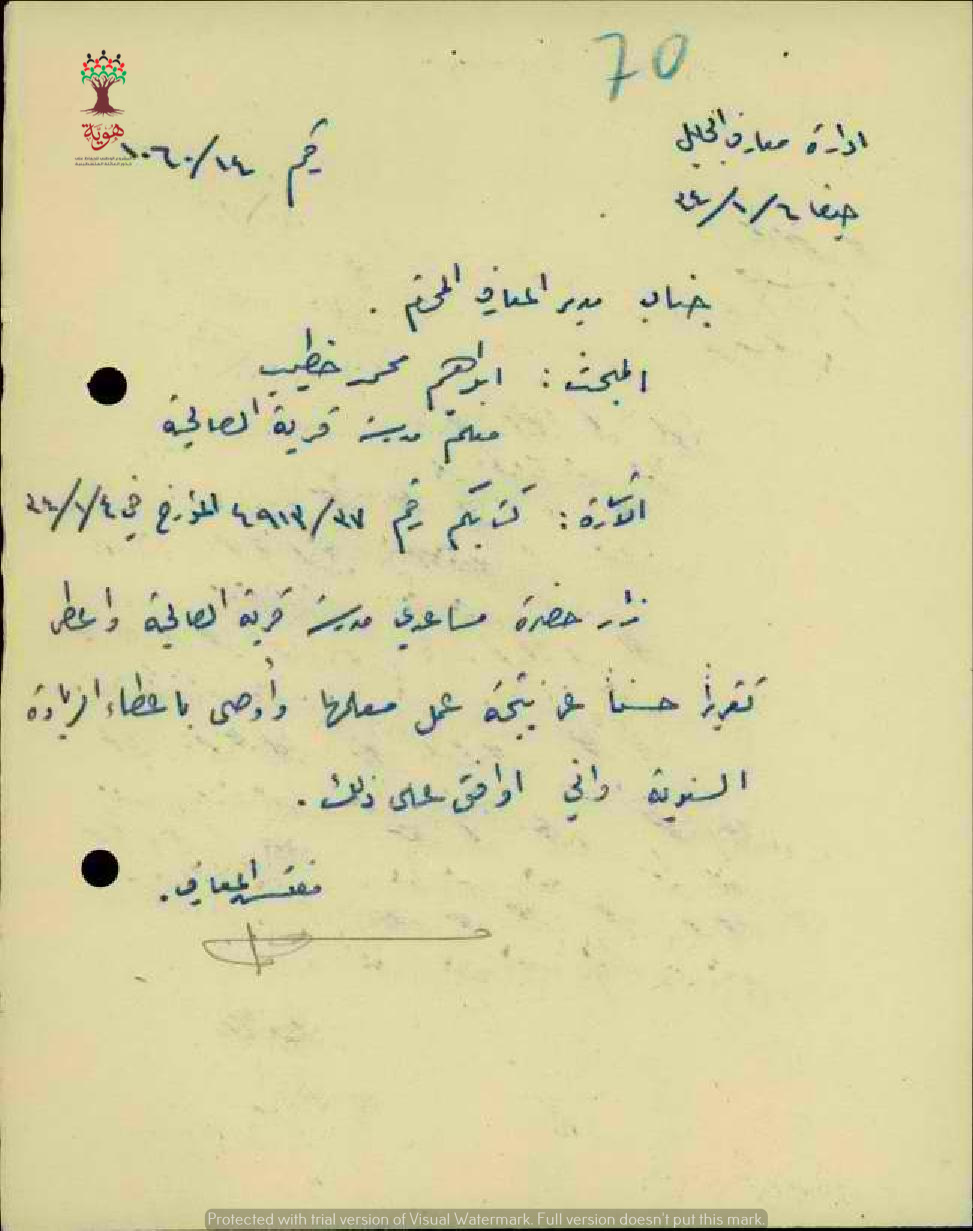 70
ادارة معارف الجليل
رقم ١٠٦٠/١٤
حيفا
جناب مدير المعارف المحترم .
المبحث : ابراهيم محمد خطيب
معلم مدرسة قرية الصالحية
الاشارة : كتابكم رقم ٤٩١٣/٣٧ المؤرخ في
زار حضرة مساعدي مدرسة قرية الصالحية واعطى
تقريراً حسناً عن نتيجة عمل معلمها وأوصى باعطاء الزيادة
السنوية واني اوافق على ذلك .
مفتش المعارف .
هوية
Protected with trial version of Visual Watermark. Full version doesn't put this mark.